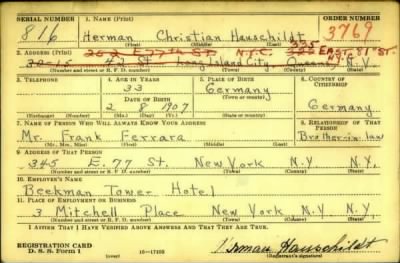 SERIAL NUMBER 1. NAME (Print) ORDER NUMBER
816 Herman Christian Hauschildt 3769
(First) (Middle) (Last)
2. ADDRESS (Print) 262 E 77th St. N.Y.C. 335 EAST 81" ST.
30-15 42 St. Long Island City, Queens N.Y.
(Number and street or R. F. D. number) (Town) (County) (State)
3. TELEPHONE 4. AGE IN YEARS 5. PLACE OF BIRTH 6. COUNTRY OF CITIZENSHIP
33 Germany
DATE OF BIRTH (Town or county)
2 8 1907 Germany
(Exchange) (Number) (Mo.) (Day) (Yr.) (State or country)
7. NAME OF PERSON WHO WILL ALWAYS KNOW YOUR ADDRESS 8. RELATIONSHIP OF THAT PERSON
Mr. Frank Ferrara Brother in law
(Mr., Mrs., Miss) (First) (Middle) (Last)
9. ADDRESS OF THAT PERSON
345 E. 77 St, New York N.Y N.Y,
(Number and street or R. F. D. number) (Town) (County) (State)
10. EMPLOYER'S NAME
Beekman Tower Hotel
11. PLACE OF EMPLOYMENT OR BUSINESS
3 Mitchell Place New York N.Y N.Y,
(Number and street or R. F. D. number) (Town) (County) (State)
I AFFIRM THAT I HAVE VERIFIED ABOVE ANSWERS AND THAT THEY ARE TRUE.
REGISTRATION CARD
D. S. S. Form 1 (over) Herman Hauschildt
(Registrant's signature)